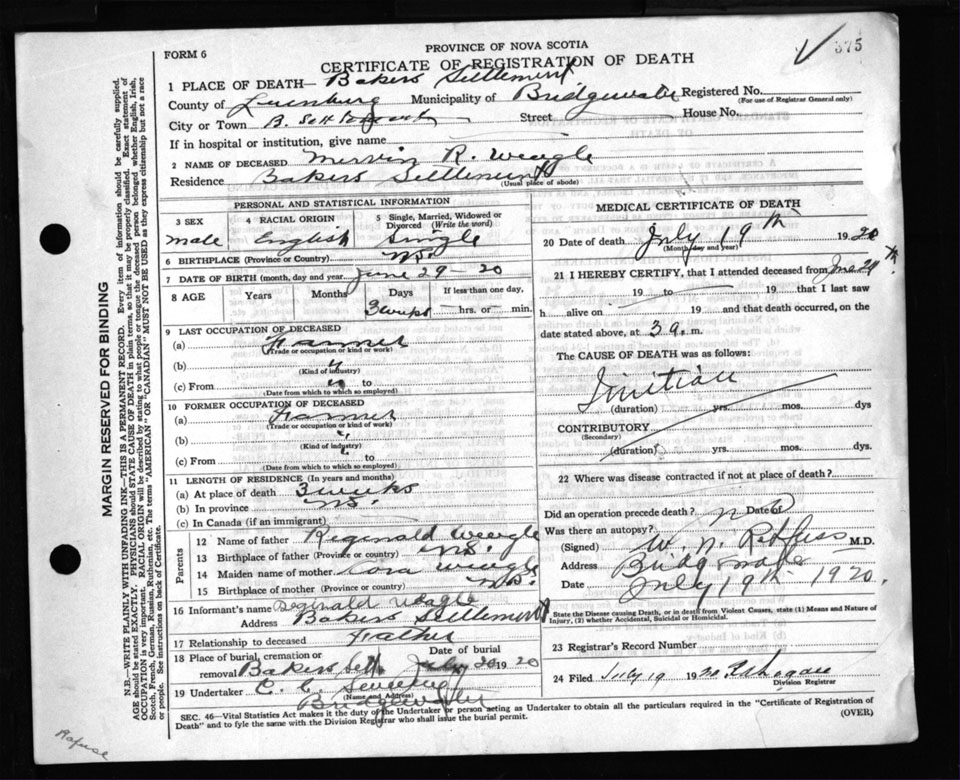 375
FORM 6
PROVINCE OF NOVA SCOTIA
CERTIFICATE OF REGISTRATION OF DEATH
1 PLACE OF DEATH— Bakers Settlement
County of Lunenburg Municipality of Bridgewater Registered No.
(For use of Registrar General only)
City or Town B. Sett Street House No.
If in hospital or institution, give name
2 NAME OF DECEASED Mervin R. Weagle
Residence Bakers Settlement
(Usual place of abode)
PERSONAL AND STATISTICAL INFORMATION
3 SEX
male
4 RACIAL ORIGIN
English
5 Single, Married, Widowed or Divorced (Write the word)
Single
6 BIRTHPLACE (Province or Country) N.S.
7 DATE OF BIRTH (month, day and year) June 29-20
8 AGE Years Months Days If less than one day,
3 weeks hrs. or min.
9 LAST OCCUPATION OF DECEASED
(a) Farmer
(Trade or occupation or kind or work)
(b) "
(Kind of industry)
(c) From " to
(Date from which to which so employed)
10 FORMER OCCUPATION OF DECEASED
(a) Farmer
(Trade or occupation or kind of work)
(b) "
(Kind of industry)
(c) From to
(Date from which to which so employed)
11 LENGTH OF RESIDENCE (In years and months)
(a) At place of death 3 weeks
(b) In province N.S.
(c) In Canada (if an immigrant)
Parents
12 Name of father Reginald Weagle
13 Birthplace of father (Province or country) N.S.
14 Maiden name of mother Cora Weagle
15 Birthplace of mother (Province or country) N.S.
16 Informant's name Reginald Weagle
Address Bakers Settlement
17 Relationship to deceased Father
18 Place of burial, cremation or removal Bakers Sett Date of burial July 20 1920
19 Undertaker C. C.
(Name and Address)
Bridgewater
MEDICAL CERTIFICATE OF DEATH
20 Date of death July 19th 1920
(Month day and year)
21 I HEREBY CERTIFY, that I attended deceased from
19 to 19 that I last saw
h alive on 19 and that death occurred, on
date stated above, at 3 a. m.
The CAUSE OF DEATH was as follows:
Inition
(duration) yrs. mos. dys
CONTRIBUTORY
(Secondary)
(duration) yrs. mos. dys.
22 Where was disease contracted if not at place of death?
Did an operation precede death? Date of
Was there an autopsy? no
(Signed) W. N. Rehfuss M.D.
Address Bridgewater
Date July 19th 1920.
State the Disease causing Death, or in death from Violent Causes, state (1) Means and Nature of Injury, (2) whether Accidental, Suicidal or Homicidal.
23 Registrar's Record Number
24 Filed July 19 1920
Division Registrar
SEC. 46—Vital Statistics Act makes it the duty of the Undertaker or person acting as Undertaker to obtain all the particulars required in the "Certificate of Registration of
Death" and to fyle the same with the Division Registrar who shall issue the burial permit. (OVER)
MARGIN RESERVED FOR BINDING
N.B.—WRITE PLAINLY WITH UNFADING INK—THIS IS A PERMANENT RECORD. Every item of information should be carefully supplied.
AGE should be stated EXACTLY. PHYSICIANS should STATE CAUSE OF DEATH in plain terms, so that it may be properly classified. Exact statement of
OCCUPATION is very important. RACIAL ORIGIN will be described by stating to what people or tongue the deceased person belonged whether English, Irish,
Scotch, French, German, Russian, Ruthenian, etc. The terms "AMERICAN" OR "CANADIAN" MUST NOT BE USED as they express citizenship but not a race
or people. See instructions on back of Certificate.
Refuse